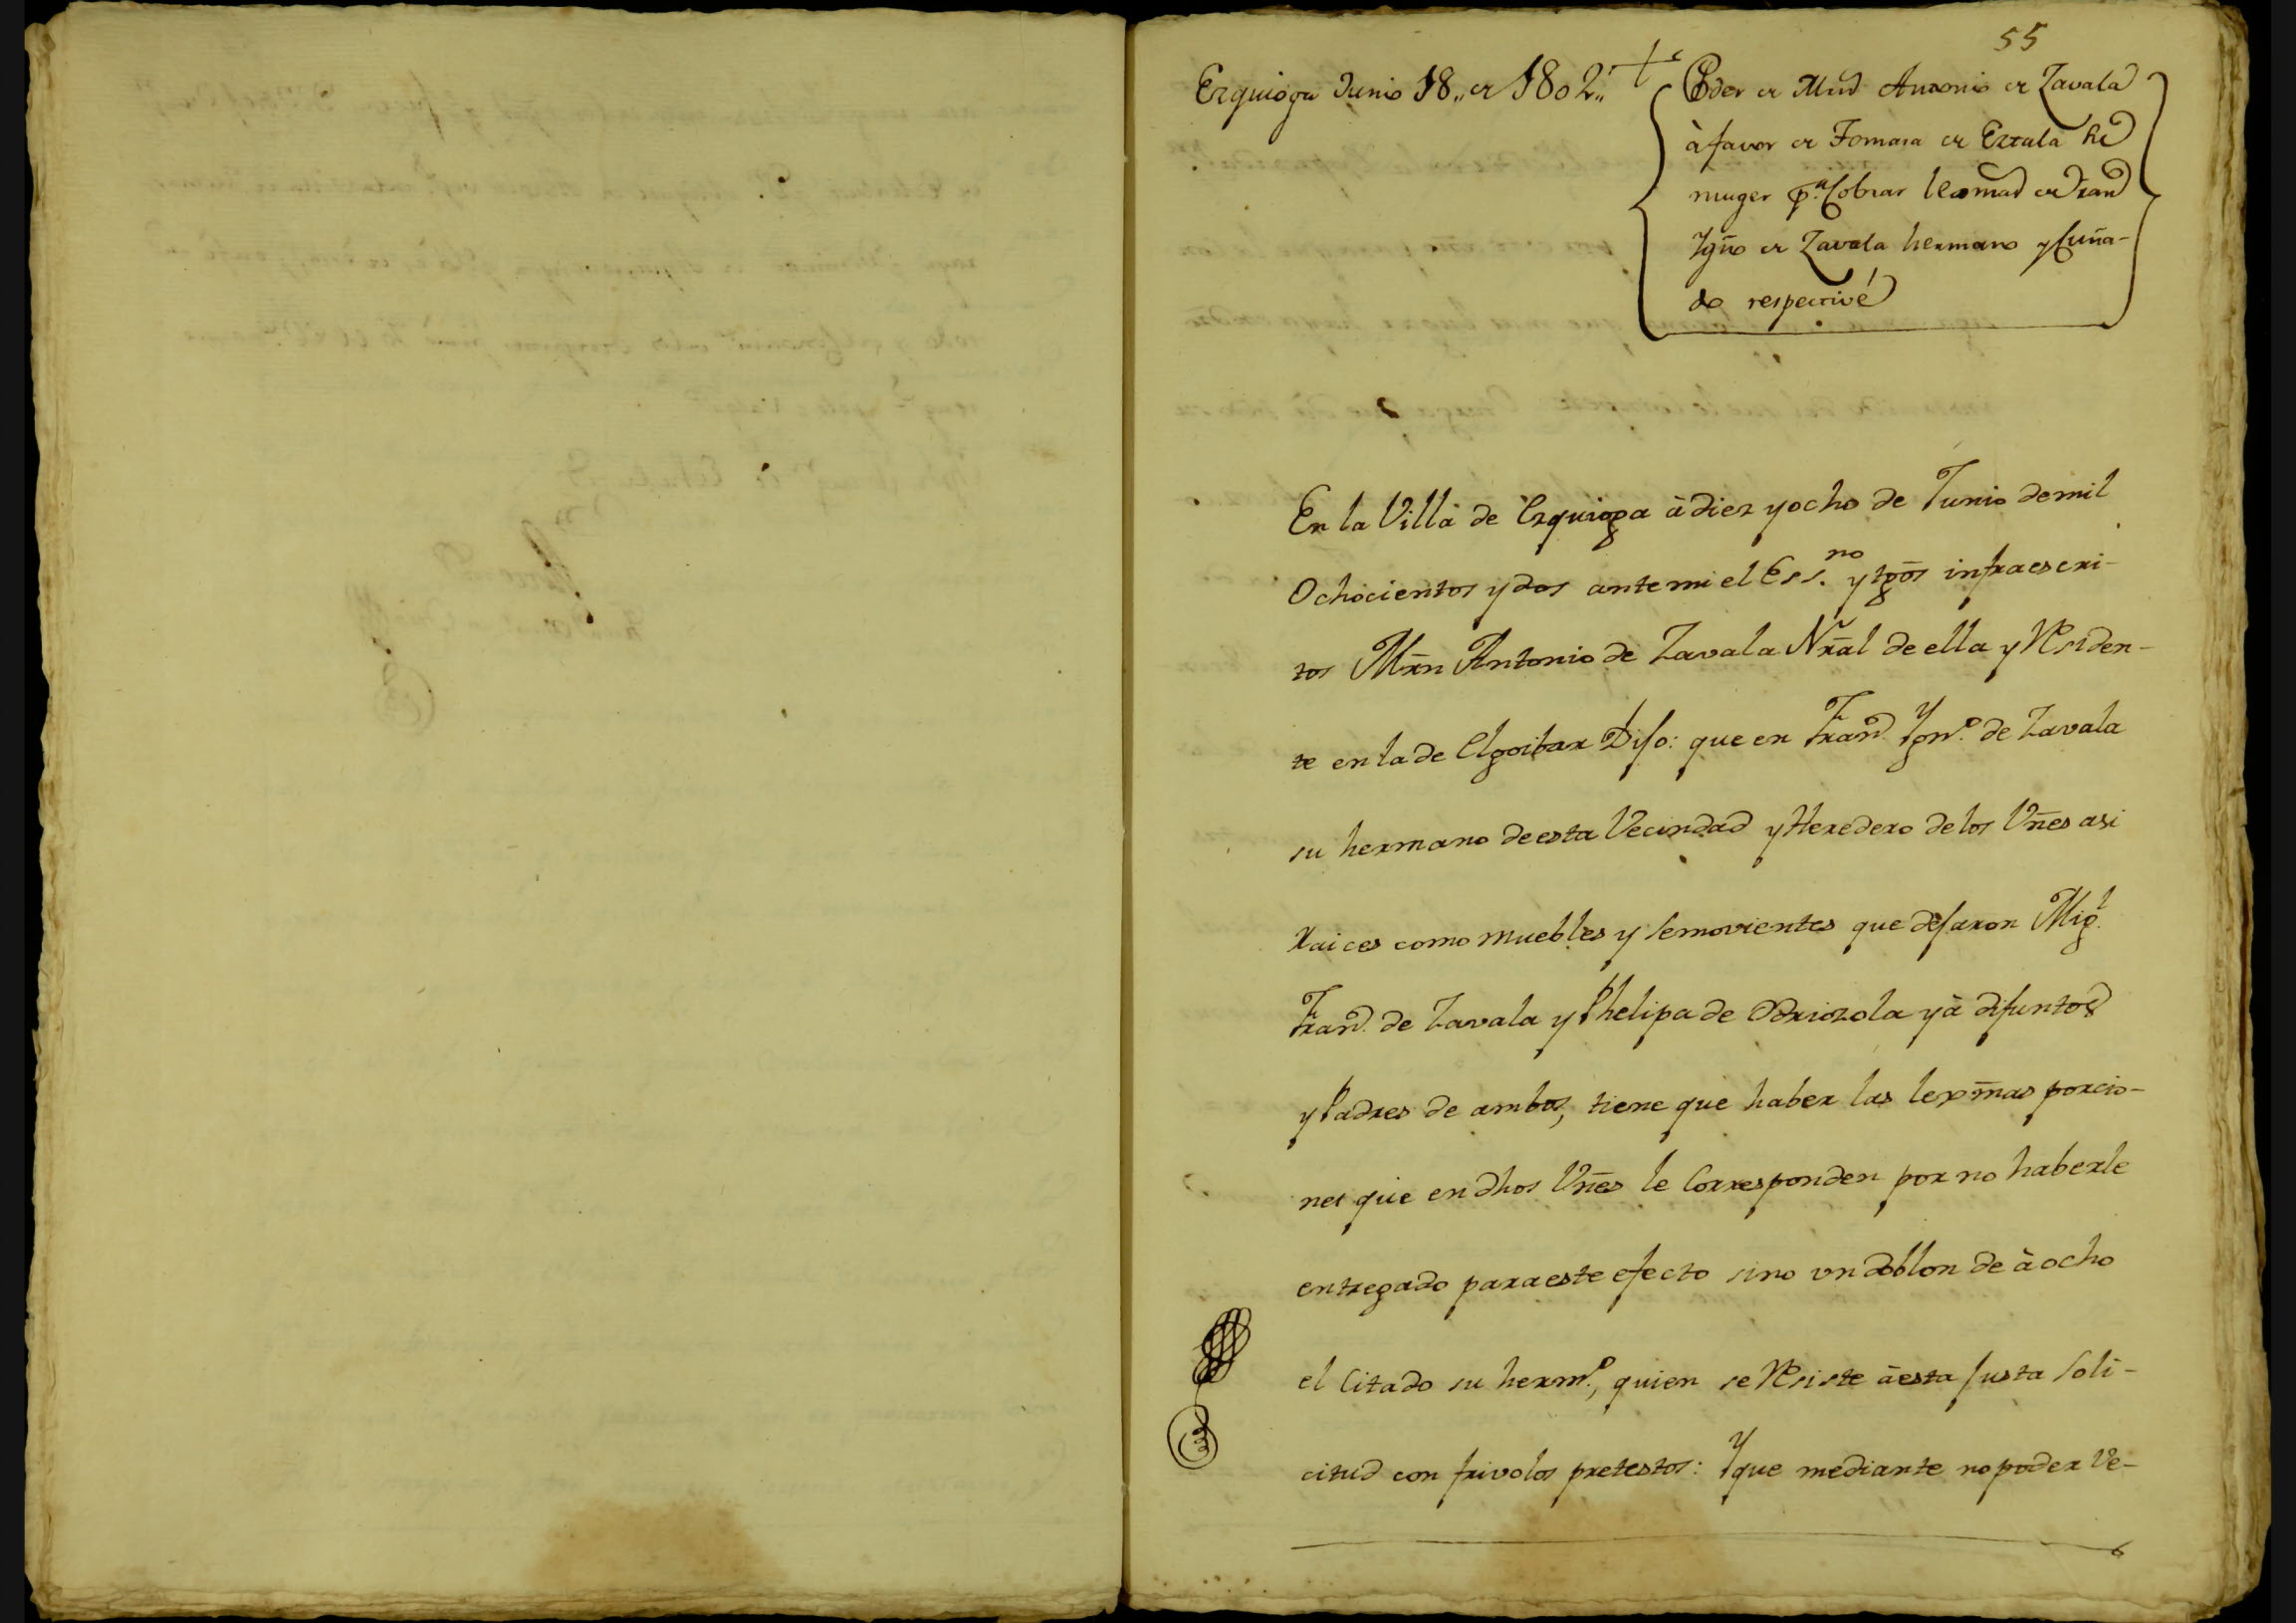 55
Ezquioga Junio 18,, de 1802,,
Poder de Mrñ Antonio de Zavala
à favor de Tomasa de Eztala su
muger pª Cobrar lexmas de Fran
Ygnº de Zavala hermano y Cuña-
do respectivé
En la Villa de Ezquioga à diez y ocho de Junio de mil
Ochocientos y dos ante mi el Ess.no y tgõs infraescri-
tos Mrñ Antonio de Zavala Nrãl de ella y Residen-
te en la de Elgoibar Dijo: que en Franº Ygnº de Zavala
su hermano de esta Vecindad y Heredero de los Vñes asi
raices como muebles y semovientes que dejaron Migl
Franº de Zavala y Phelipa de Odriozola yà difuntos
y Padres de ambos, tiene que haber las lexm̃as porcio-
nes que en dhos Vñes le Corresponden por no haberle
entregado para este efecto sino vn doblon de à ocho
el Citado su hermº, quien se Resiste à esta justa Soli-
citud con frivolos pretestos: Y que mediante no poder Ve-